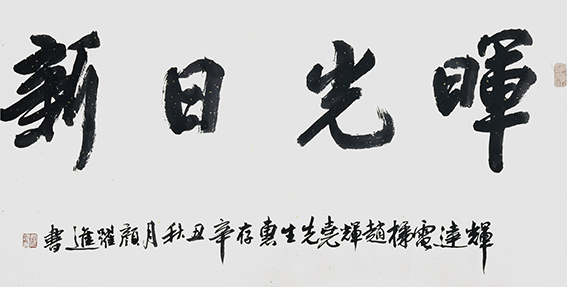 暉光日新
輝達電梯趙輝堯先生惠存辛丑秋月顏躍進書